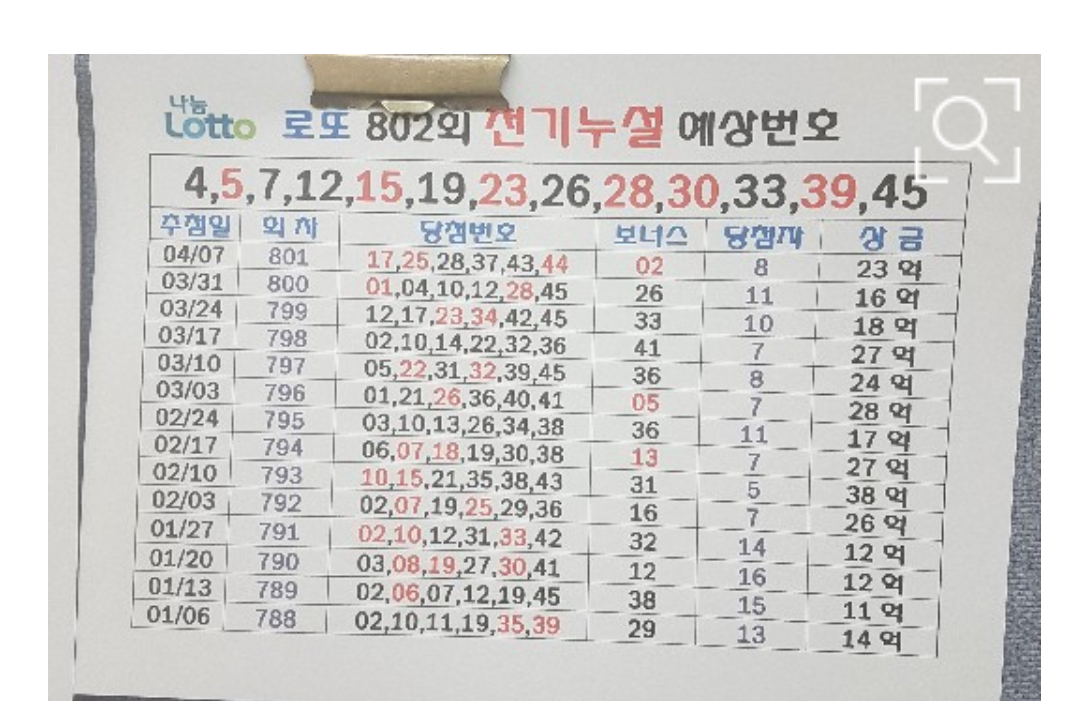 나눔
Lotto 로또 802회 천기누설 예상번호
4,5,7,12,15,19,23,26,28,30,33,39,45
추첨일 회 차 당첨번호 보너스 당첨자 상 금
04/07 801 17,25,28,37,43,44 02 8 23 억
03/31 800 01,04,10,12,28,45 26 11 16 억
03/24 799 12,17,23,34,42,45 33 10 18 억
03/17 798 02,10,14,22,32,36 41 7 27 억
03/10 797 05,22,31,32,39,45 36 8 24 억
03/03 796 01,21,26,36,40,41 05 7 28 억
02/24 795 03,10,13,26,34,38 36 11 17 억
02/17 794 06,07,18,19,30,38 13 7 27 억
02/10 793 10,15,21,35,38,43 31 5 38 억
02/03 792 02,07,19,25,29,36 16 7 26 억
01/27 791 02,10,12,31,33,42 32 14 12 억
01/20 790 03,08,19,27,30,41 12 16 12 억
01/13 789 02,06,07,12,19,45 38 15 11 억
01/06 788 02,10,11,19,35,39 29 13 14 억